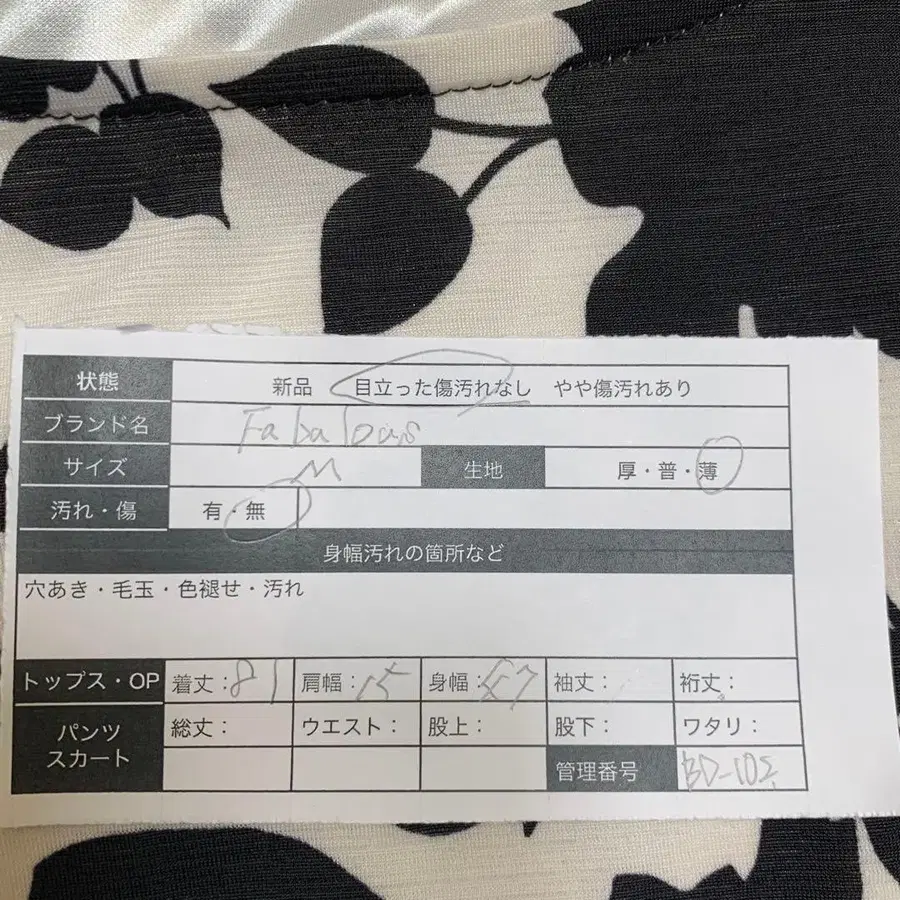 状態 新品 目立った傷汚れなし やや傷汚れあり
ブランド名 Fabalous
サイズ M 生地 厚・普・薄
汚れ・傷 有・無
身幅汚れの箇所など
穴あき・毛玉・色褪せ・汚れ
トップス・OP 着丈:81 肩幅:15 身幅:57 袖丈: 裄丈:
パンツ スカート 総丈: ウエスト: 股上: 股下: ワタリ:
管理番号 BD-102